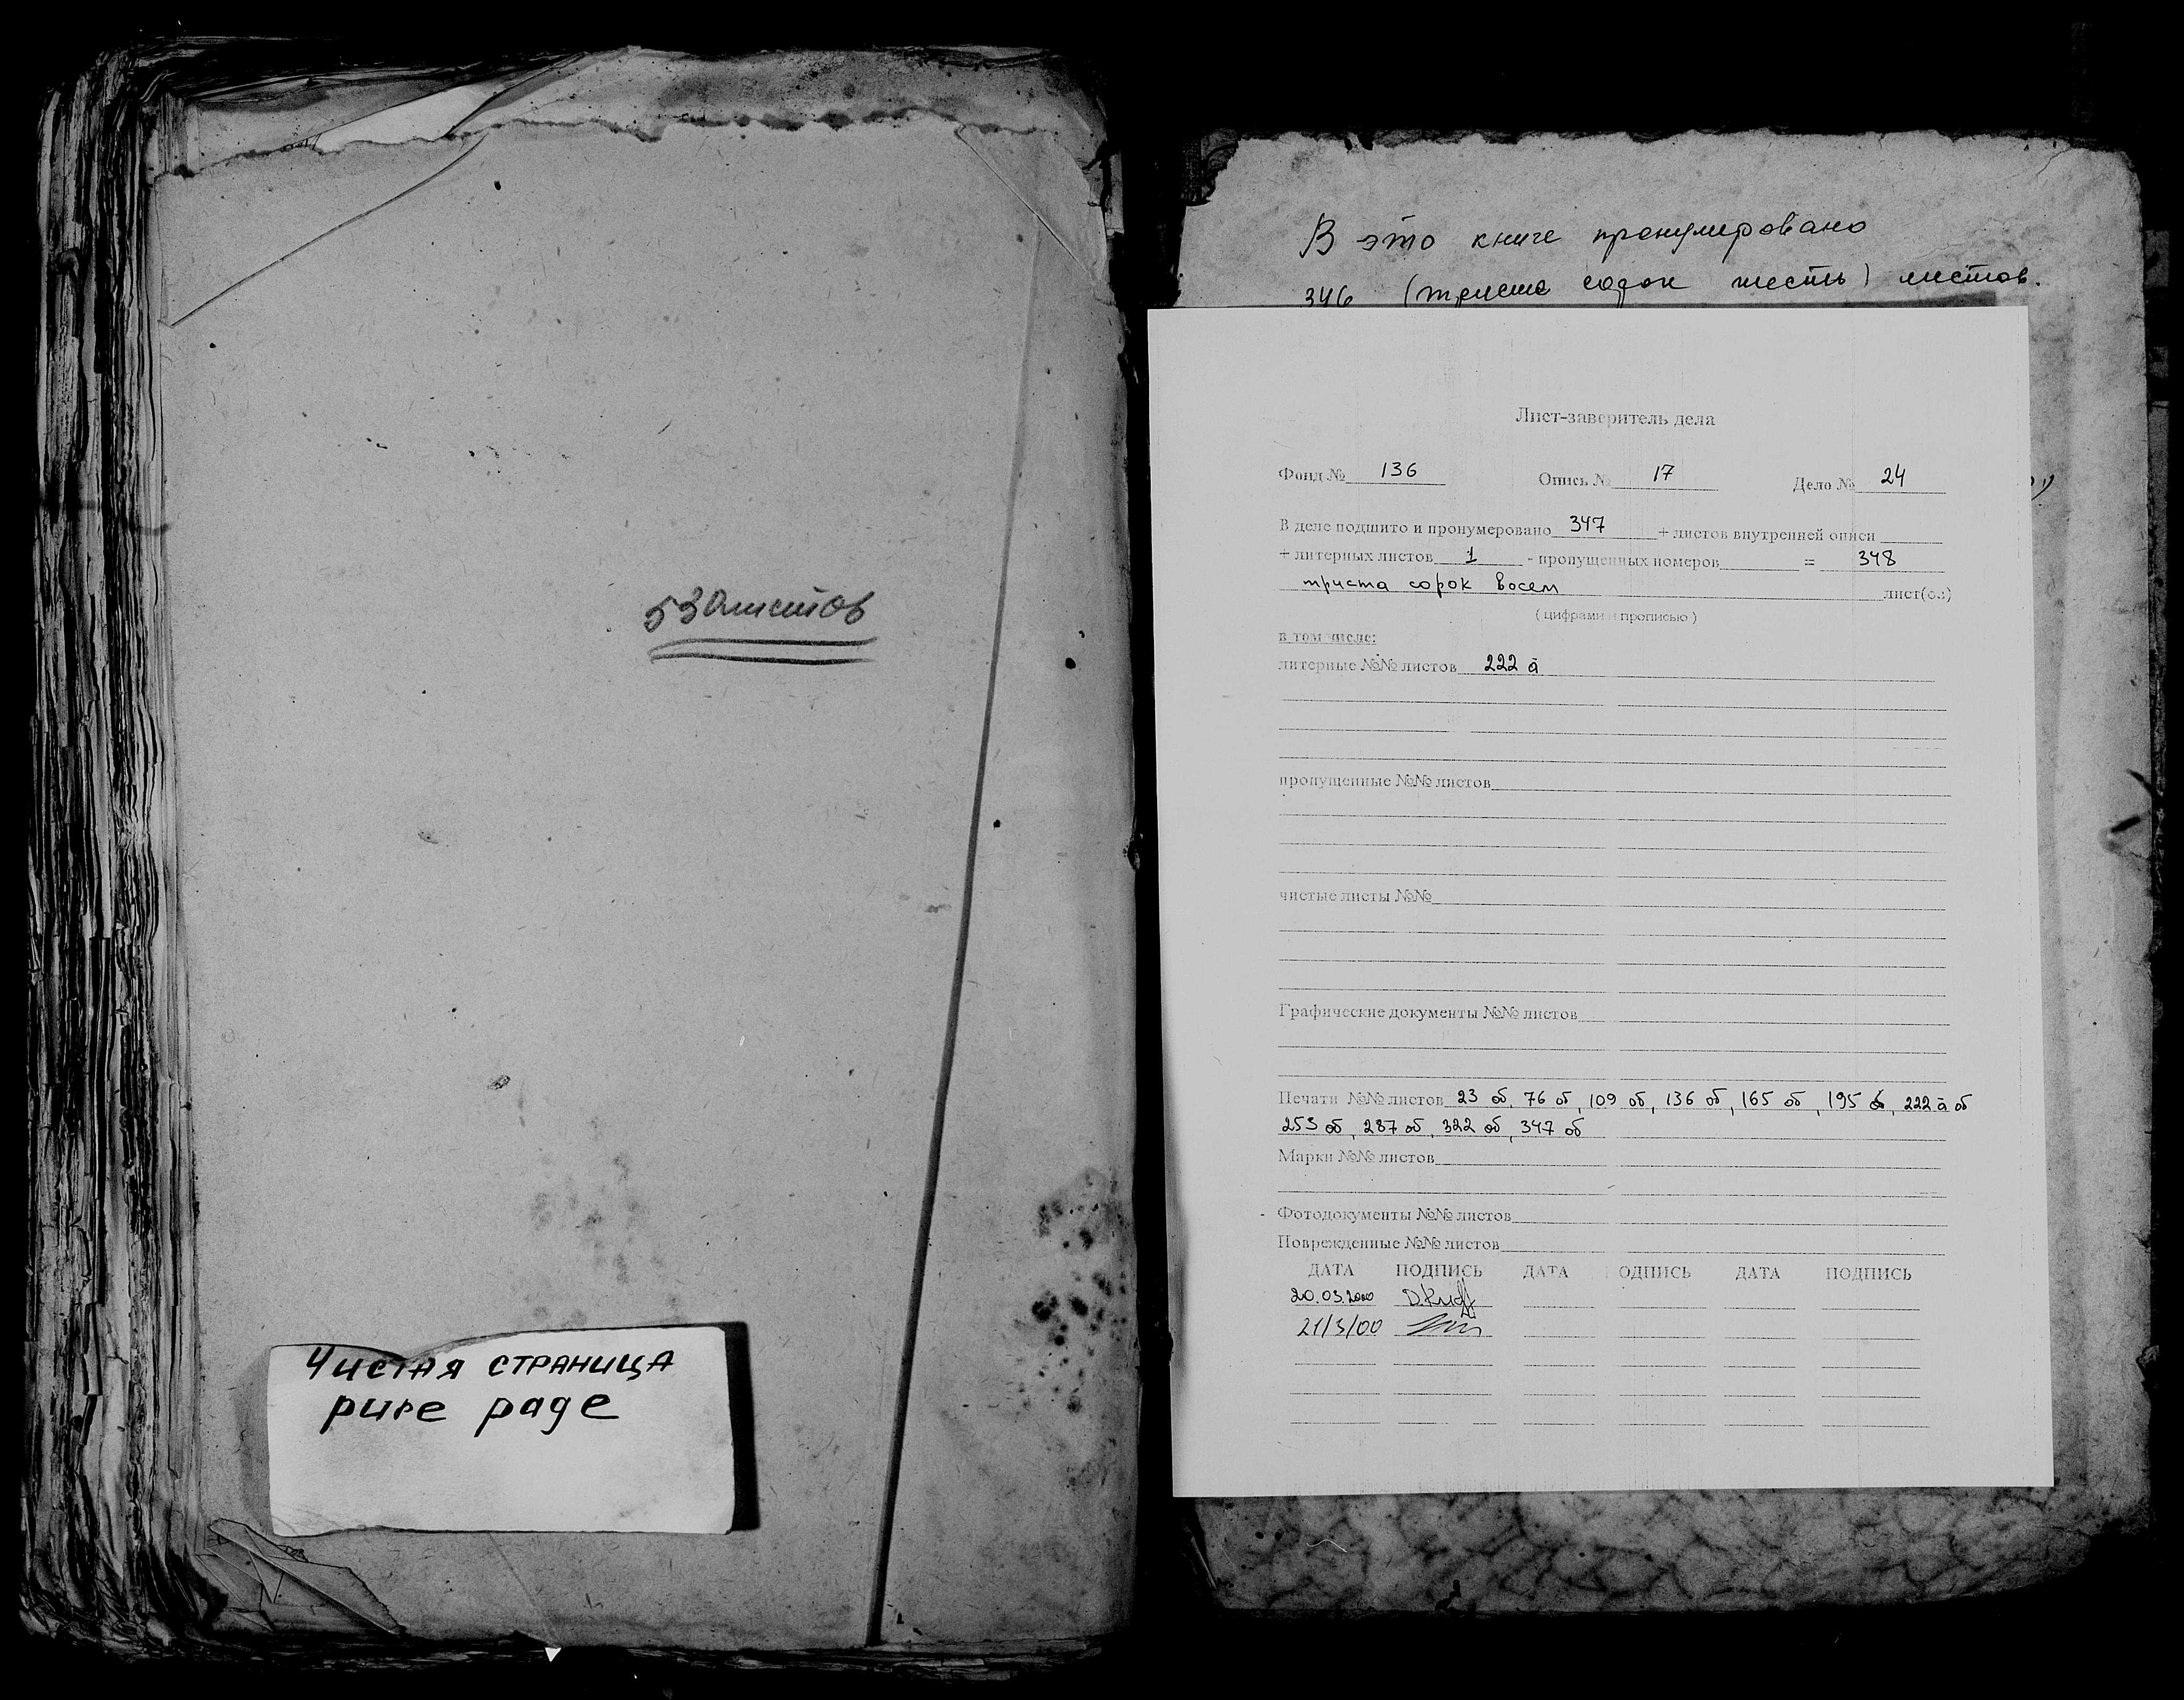 530 листов
Чистая страница
pure page
В это книге пронумеровано
346 (триста сорок шесть) листов.
Лист-заверитель дела
Фонд № 136 Опись № 17 Дело № 24
В деле подшито и пронумеровано 347 + листов внутренней описи
+ литерных листов 1 - пропущенных номеров = 348
триста сорок восем лист(ов)
( цифрами и прописью )
в том числе:
литерные №№ листов 222 а
пропущенные №№ листов
чистые листы №№
Графические документы №№ листов
Печати №№ листов 23 об, 76 об, 109 об, 136 об, 165 об, 195 об, 222 а об
253 об, 287 об, 322 об, 347 об
Марки №№ листов
Фотодокументы №№ листов
Поврежденные №№ листов
ДАТА ПОДПИСЬ ДАТА ПОДПИСЬ ДАТА ПОДПИСЬ
20.03.2000
21/3/00